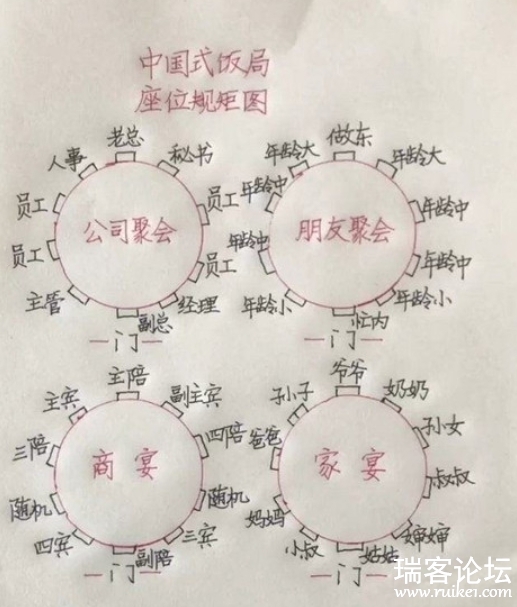 中国式饭局
座位规矩图
老总
人事
秘书
员工
员工
公司聚会
员工
员工
主管
经理
副总
门
做东
年龄大
年龄大
年龄中
年龄中
朋友聚会
年龄中
年龄中
年龄小
年龄小
忙内
门
主陪
主宾
副主宾
三陪
四陪
商宴
随机
随机
四宾
三宾
副陪
门
爷爷
孙子
奶奶
爸爸
孙女
家宴
叔叔
妈妈
婶婶
小叔
姑姑
门
瑞客论坛
www.ruike1.com